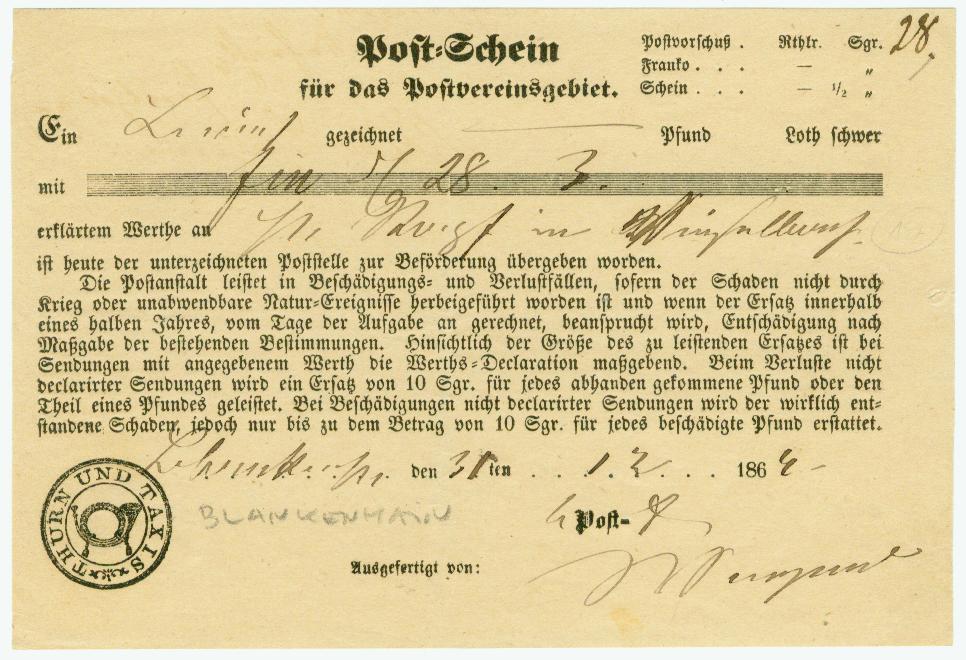 Post-Schein
für das Postvereinsgebiet.
Postvorschuß . Rthlr. Sgr. 28
Franko . . . — „
Schein . . . — ½ „
Ein gezeichnet Pfund Loth schwer
mit 28. 3.
erklärtem Werthe an in
ist heute der unterzeichneten Poststelle zur Beförderung übergeben worden.
Die Postanstalt leistet in Beschädigungs- und Verlustfällen, sofern der Schaden nicht durch
Krieg oder unabwendbare Natur-Ereignisse herbeigeführt worden ist und wenn der Ersatz innerhalb
eines halben Jahres, vom Tage der Aufgabe an gerechnet, beansprucht wird, Entschädigung nach
Maßgabe der bestehenden Bestimmungen. Hinsichtlich der Größe des zu leistenden Ersatzes ist bei
Sendungen mit angegebenem Werth die Werths-Declaration maßgebend. Beim Verluste nicht
declarirter Sendungen wird ein Ersatz von 10 Sgr. für jedes abhanden gekommene Pfund oder den
Theil eines Pfundes geleistet. Bei Beschädigungen nicht declarirter Sendungen wird der wirklich ent-
standene Schaden, jedoch nur bis zu dem Betrag von 10 Sgr. für jedes beschädigte Pfund erstattet.
den 31ten . . 12 . . 186
THURN UND TAXIS
BLANKENHAIN
Post-
Ausgefertigt von: